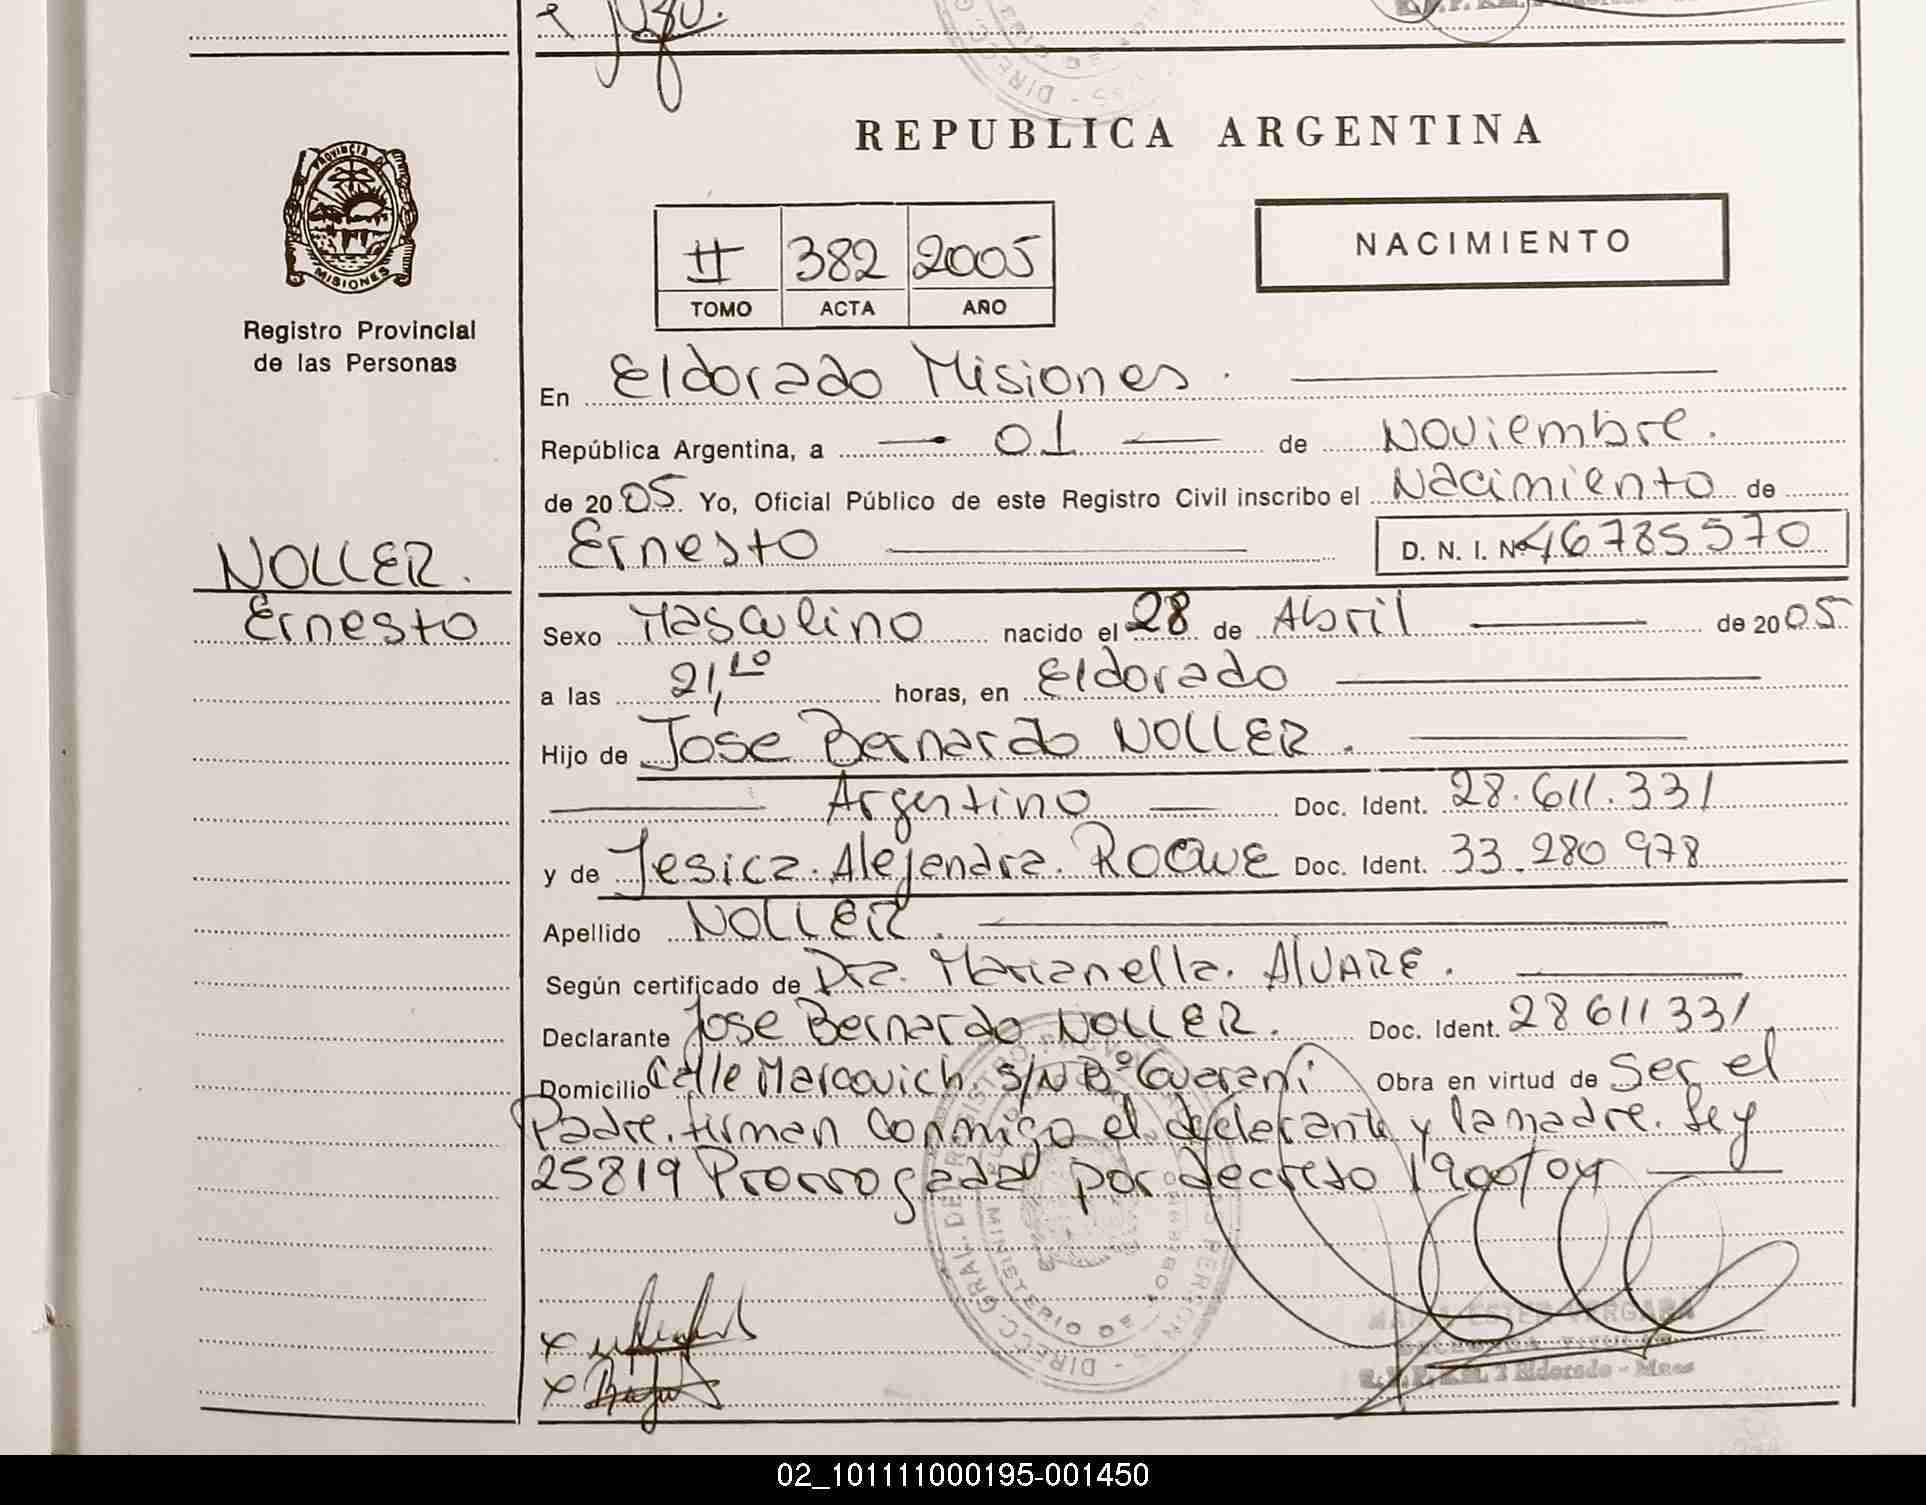 REPUBLICA ARGENTINA
PROVINCIA DE
MISIONES
Registro Provincial
de las Personas
II 382 2005
TOMO ACTA AÑO
NACIMIENTO
En Eldorado Misiones.
República Argentina, a 01 de Noviembre.
de 2005 Yo, Oficial Público de este Registro Civil inscribo el Nacimiento de
Ernesto D. N. I. Nº 46785570
NOLLER.
Ernesto
Sexo Masculino nacido el 28 de Abril de 2005
a las 21,10 horas, en Eldorado
Hijo de Jose Bernardo NOLLER.
Argentino Doc. Ident. 28.611.331
y de Jesica. Alejandra. ROQUE Doc. Ident. 33.280 978
Apellido NOLLER.
Según certificado de Dra. Marianella. AlVARE.
Declarante Jose Bernardo NOLLER. Doc. Ident. 28 611 331
Domicilio Calle Marcovich. S/N Bº Guarani Obra en virtud de Ser el
Padre. firman conmigo el declarante y la madre. Ley
25819 Prorrogada por decreto 1900/04
DIRECC. GRAL. DE REGISTRO
MINISTERIO DE GOBIERNO
ESTER VERGARA
Eldorado - Mnes
02_101111000195-001450